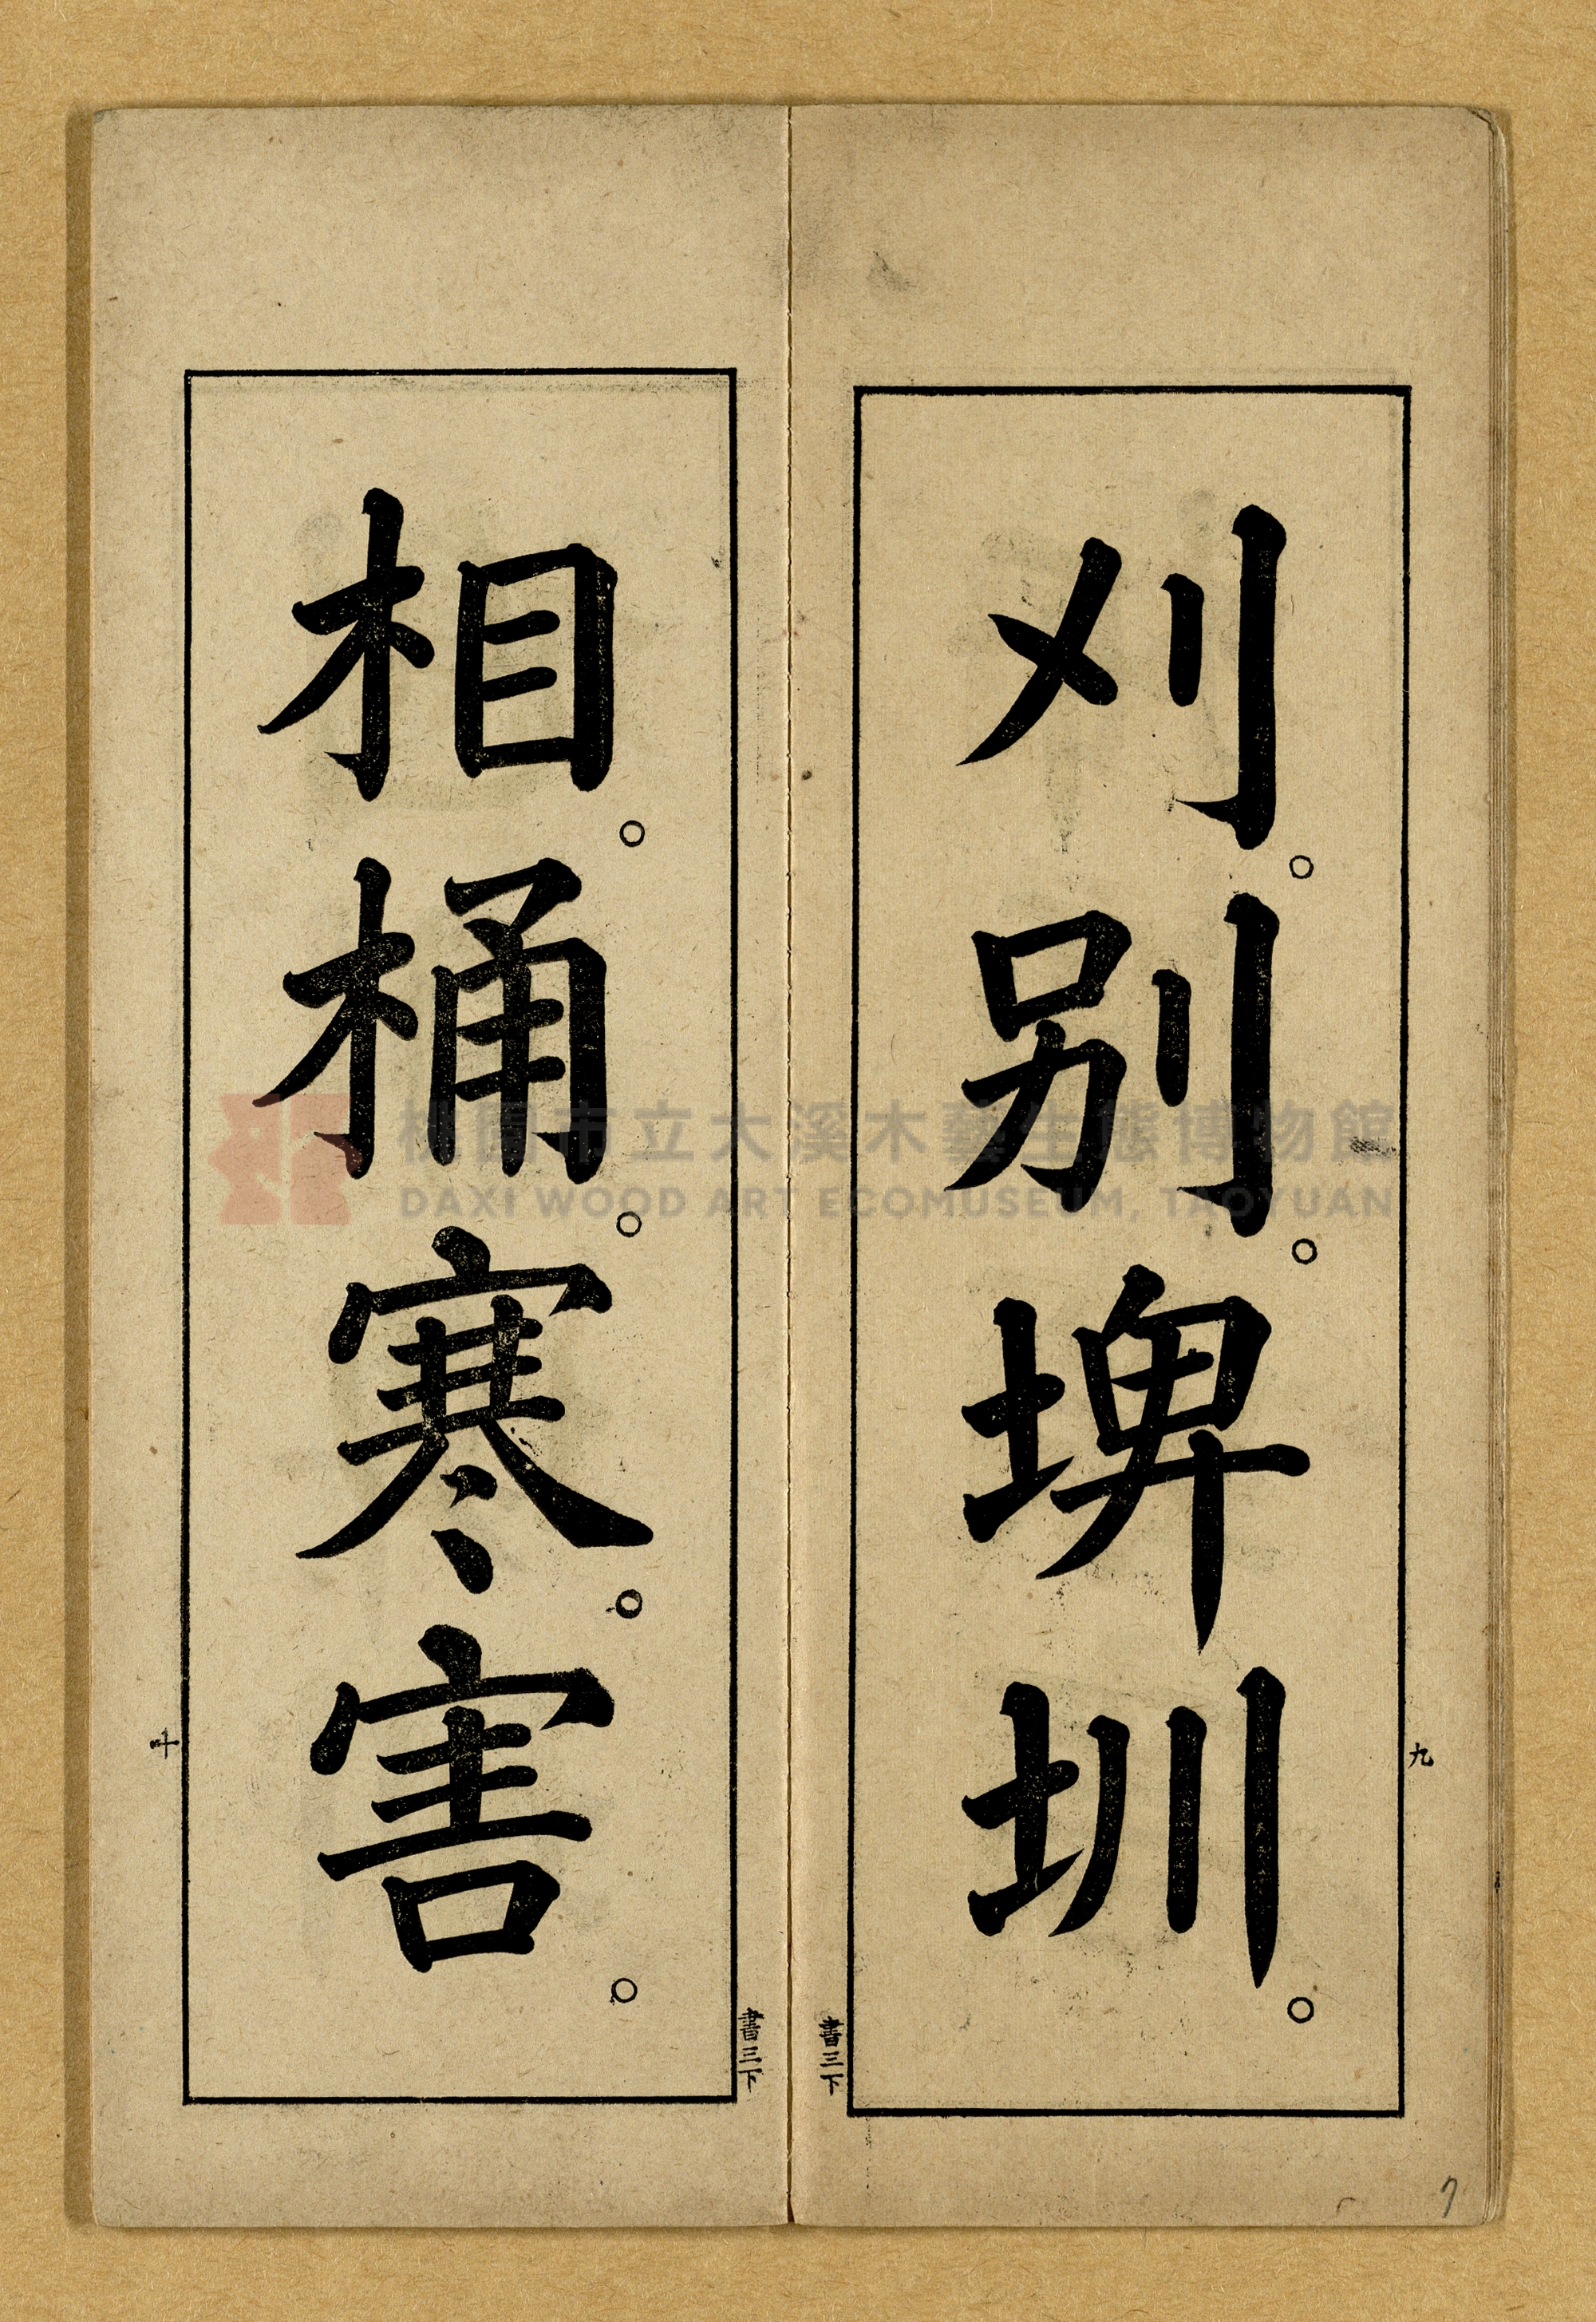 刈。別。埤圳。
九
書三下
相。桶。寒。害。
十
書三下
7
桃園市立大溪木藝生態博物館
DAXI WOOD ART ECOMUSEUM, TAOYUAN